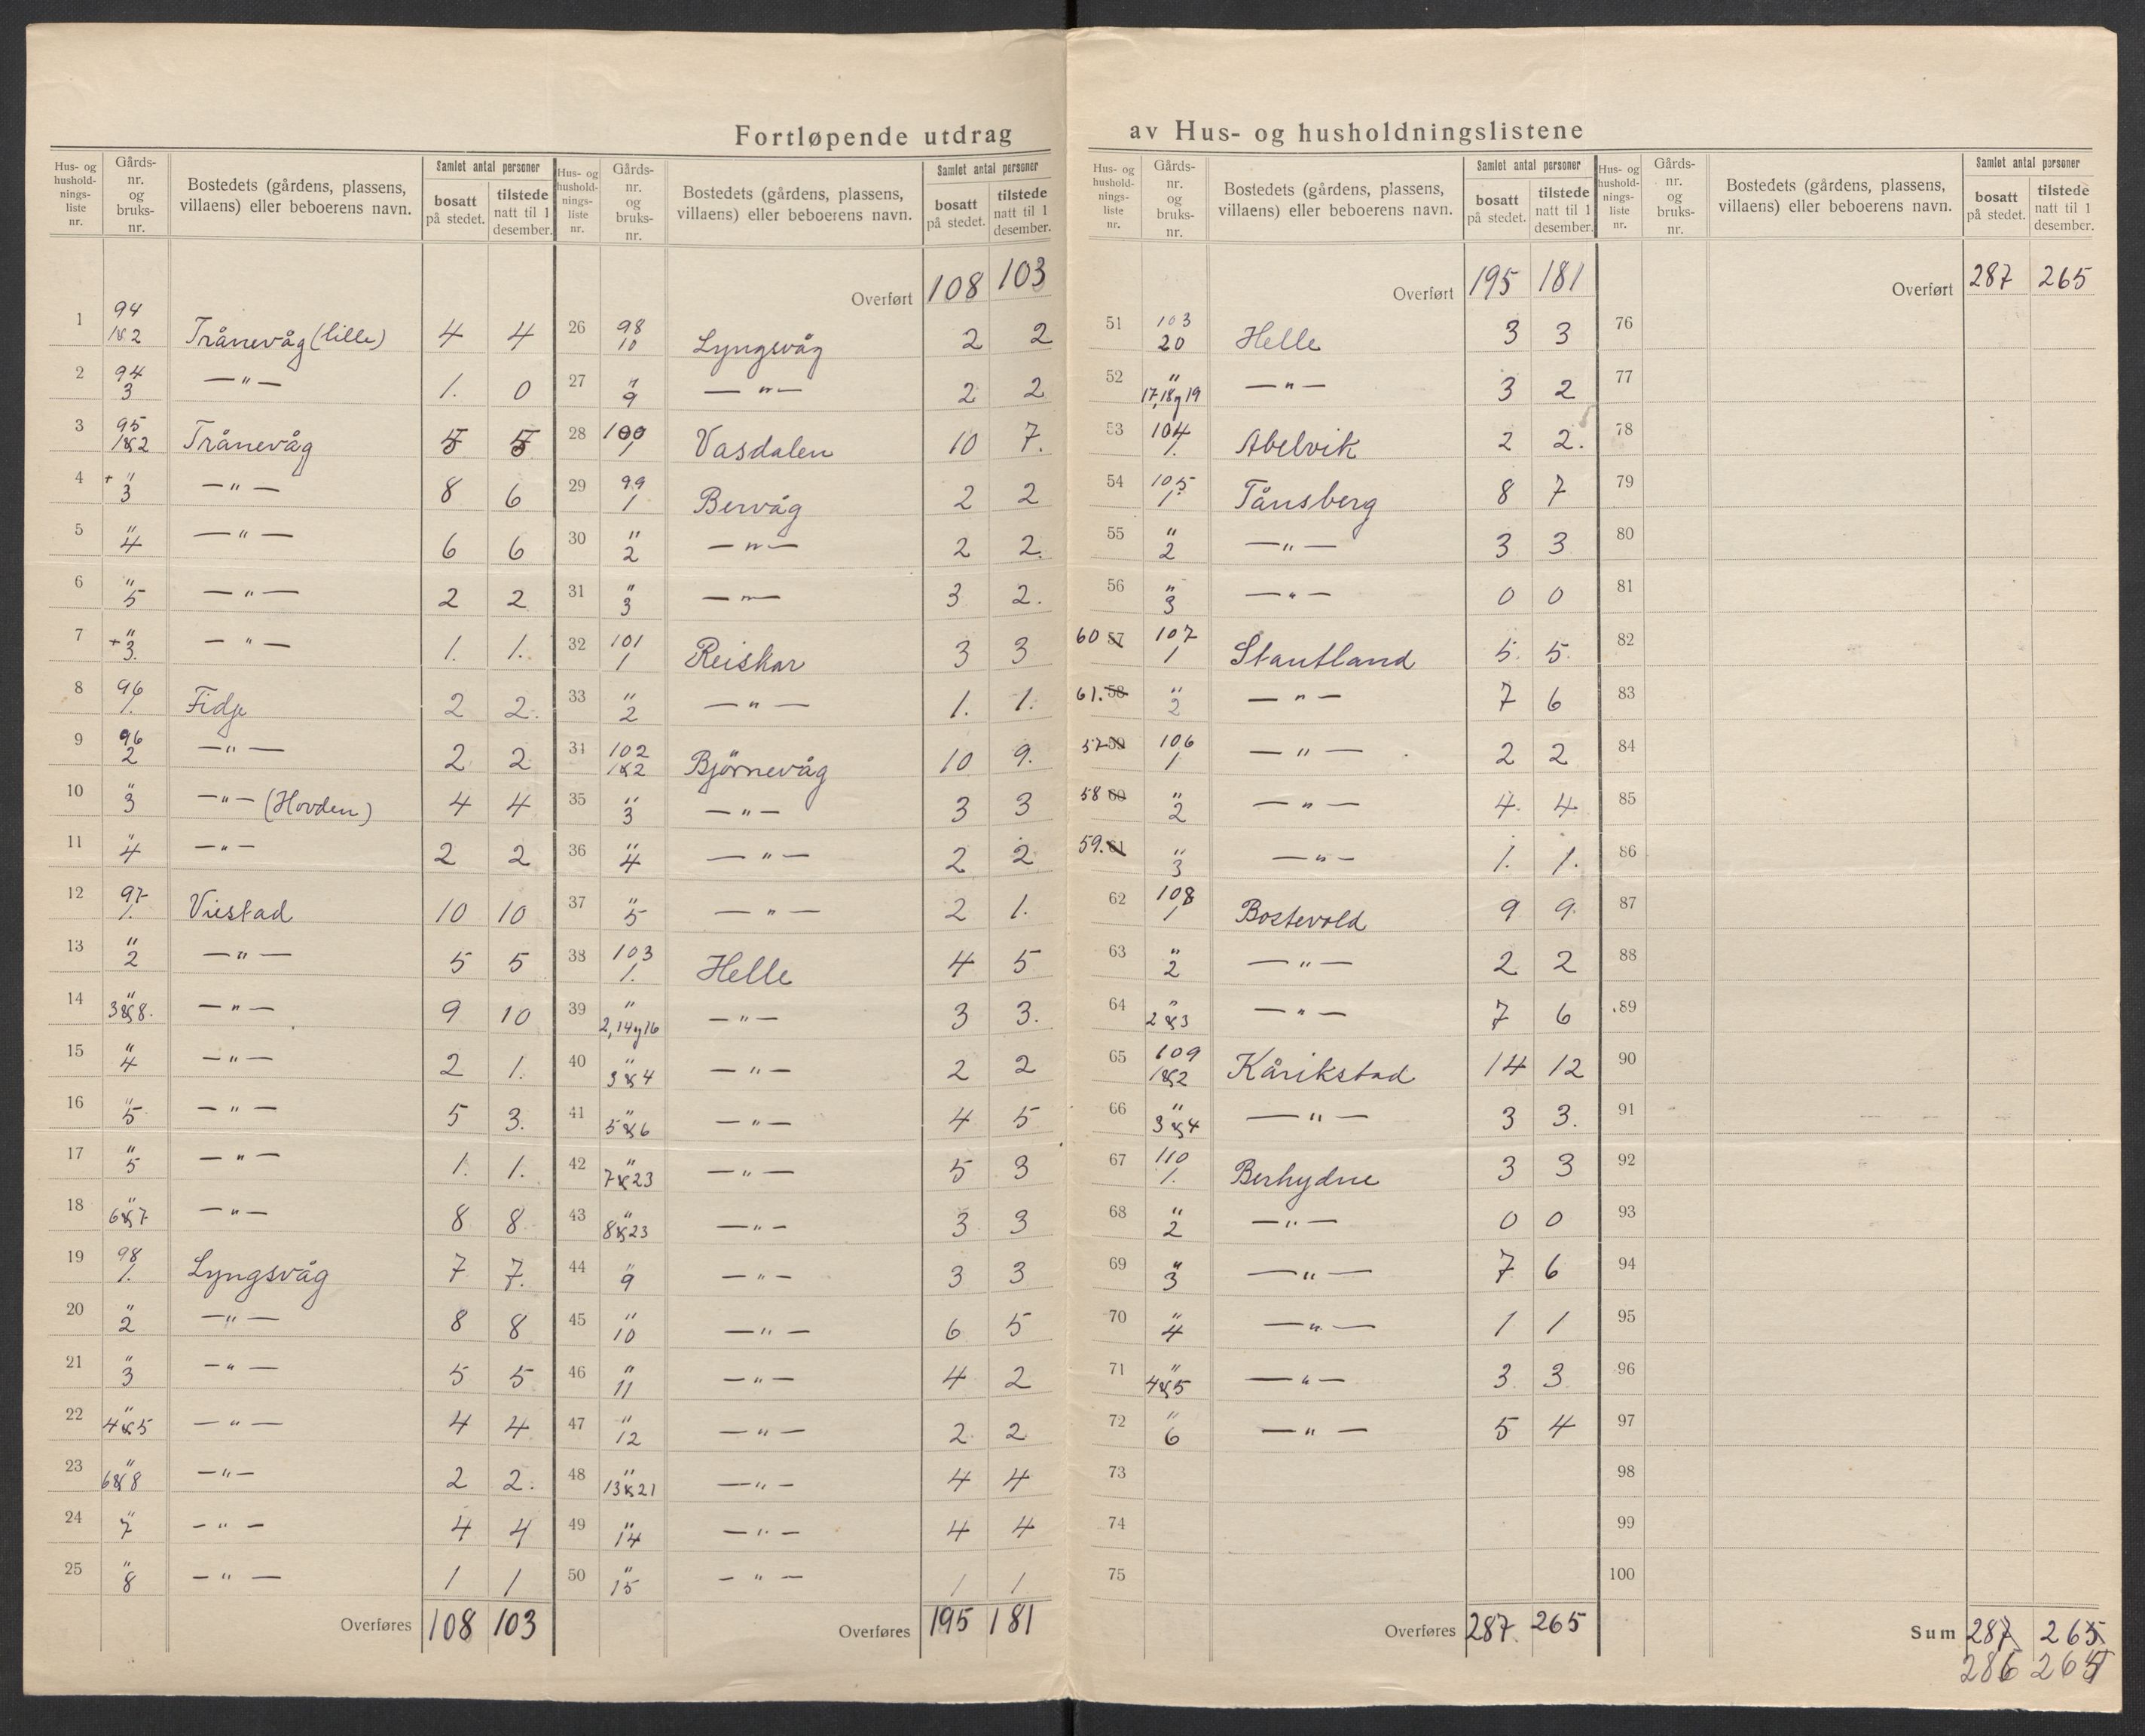 Fortløpende utdrag av Hus- og husholdningslistene
Hus- og husholdnings-liste nr. | Gårds-nr. og bruks-nr. | Bostedets (gårdens, plassens, villaens) eller beboerens navn. | Samlet antal personer: bosatt på stedet. | tilstede natt til 1 desember.
1 | 94 1&2 | Trånevåg (lille) | 4 | 4
2 | 94 3 | —"— | 1. | 0
3 | 95 1&2 | Trånevåg | 5 | 5
4 | + " 3 | —"— | 8 | 6
5 | " 4 | —"— | 6 | 6
6 | " 5 | —"— | 2 | 2
7 | + " 3. | —"— | 1. | 1.
8 | 96 1. | Fidje | 2 | 2.
9 | 96 2 | —"— | 2 | 2
10 | " 3 | —"— (Hovden) | 4 | 4
11 | " 4 | —"— | 2 | 2
12 | 97 1. | Viestad | 10 | 10
13 | " 2 | —"— | 5 | 5
14 | " 3&8. | —"— | 9 | 10
15 | " 4 | —"— | 2 | 1.
16 | " 5 | —"— | 5 | 3.
17 | " 5 | —"— | 1. | 1.
18 | " 6&7 | —"— | 8 | 8
19 | 98 1. | Lyngsvåg | 7 | 7.
20 | " 2 | —"— | 8 | 8
21 | " 3 | —"— | 5 | 5
22 | " 4&5 | —"— | 4 | 4
23 | " 6&8 | —"— | 2 | 2.
24 | " 7 | —"— | 4 | 4
25 | " 8 | —"— | 1 | 1
Overføres 108 103
Hus- og husholdnings-liste nr. | Gårds-nr. og bruks-nr. | Bostedets (gårdens, plassens, villaens) eller beboerens navn. | Samlet antal personer: bosatt på stedet. | tilstede natt til 1 desember.
Overført 108 103
26 | 98 10 | Lyngsvåg | 2 | 2
27 | " 9 | —"— | 2 | 2
28 | 100 1 | Vasdalen | 10 | 7.
29 | 99 1 | Bervåg | 2 | 2
30 | " 2 | —"— | 2 | 2.
31 | " 3 | —"— | 3 | 2.
32 | 101 1 | Reiskar | 3 | 3
33 | " 2 | —"— | 1. | 1.
34 | 102 1&2 | Björnevåg | 10 | 9.
35 | " 3 | —"— | 3 | 3
36 | " 4 | —"— | 2 | 2
37 | " 5 | —"— | 2 | 1.
38 | 103 1. | Helle | 4 | 5
39 | " 2,14og16 | —"— | 3 | 3.
40 | " 3&4 | —"— | 2 | 2
41 | " 5&6 | —"— | 4 | 5
42 | " 7&23 | —"— | 5 | 3
43 | " 8&23 | —"— | 3 | 3
44 | " 9 | —"— | 3 | 3
45 | " 10 | —"— | 6 | 5
46 | " 11 | —"— | 4 | 2
47 | " 12 | —"— | 2 | 2
48 | " 13&21 | —"— | 4 | 4
49 | " 14 | —"— | 4 | 4
50 | " 15 | —"— | 1 | 1
Overføres 195 181
Hus- og husholdnings-liste nr. | Gårds-nr. og bruks-nr. | Bostedets (gårdens, plassens, villaens) eller beboerens navn. | Samlet antal personer: bosatt på stedet. | tilstede natt til 1 desember.
Overført 195 181
51 | 103 20 | Helle | 3 | 3
52 | " 17,18og19 | —"— | 3 | 2
53 | 104 1. | Abelvik | 2 | 2.
54 | 105 1 | Tånsberg | 8 | 7
55 | " 2 | —"— | 3 | 3
56 | " 3 | —"— | 0 | 0
60 57 | 107 1 | Stautland | 5. | 5.
61. 58 | " 2 | —"— | 7 | 6
57 59 | 106 1 | —"— | 2 | 2
58 60 | " 2 | —"— | 4. | 4.
59. 61 | " 3 | —"— | 1. | 1.
62 | 108 1 | Bostevold | 9 | 9.
63 | " 2 | —"— | 2 | 2
64 | " 2&3 | —"— | 7 | 6
65 | 109 1&2 | Kårikstad | 14 | 12
66 | " 3&4 | —"— | 3 | 3.
67 | 110 1. | Berhydne | 3 | 3
68 | " 2 | —"— | 0 | 0
69 | " 3 | —"— | 7 | 6
70 | " 4 | —"— | 1 | 1
71 | " 4&5 | —"— | 3 | 3
72 | " 6 | —"— | 5 | 4
73
74
75
Overføres 287 265
Hus- og husholdnings-liste nr. | Gårds-nr. og bruks-nr. | Bostedets (gårdens, plassens, villaens) eller beboerens navn. | Samlet antal personer: bosatt på stedet. | tilstede natt til 1 desember.
Overført 287 265
76
77
78
79
80
81
82
83
84
85
86
87
88
89
90
91
92
93
94
95
96
97
98
99
100
Sum 287 265
286 264